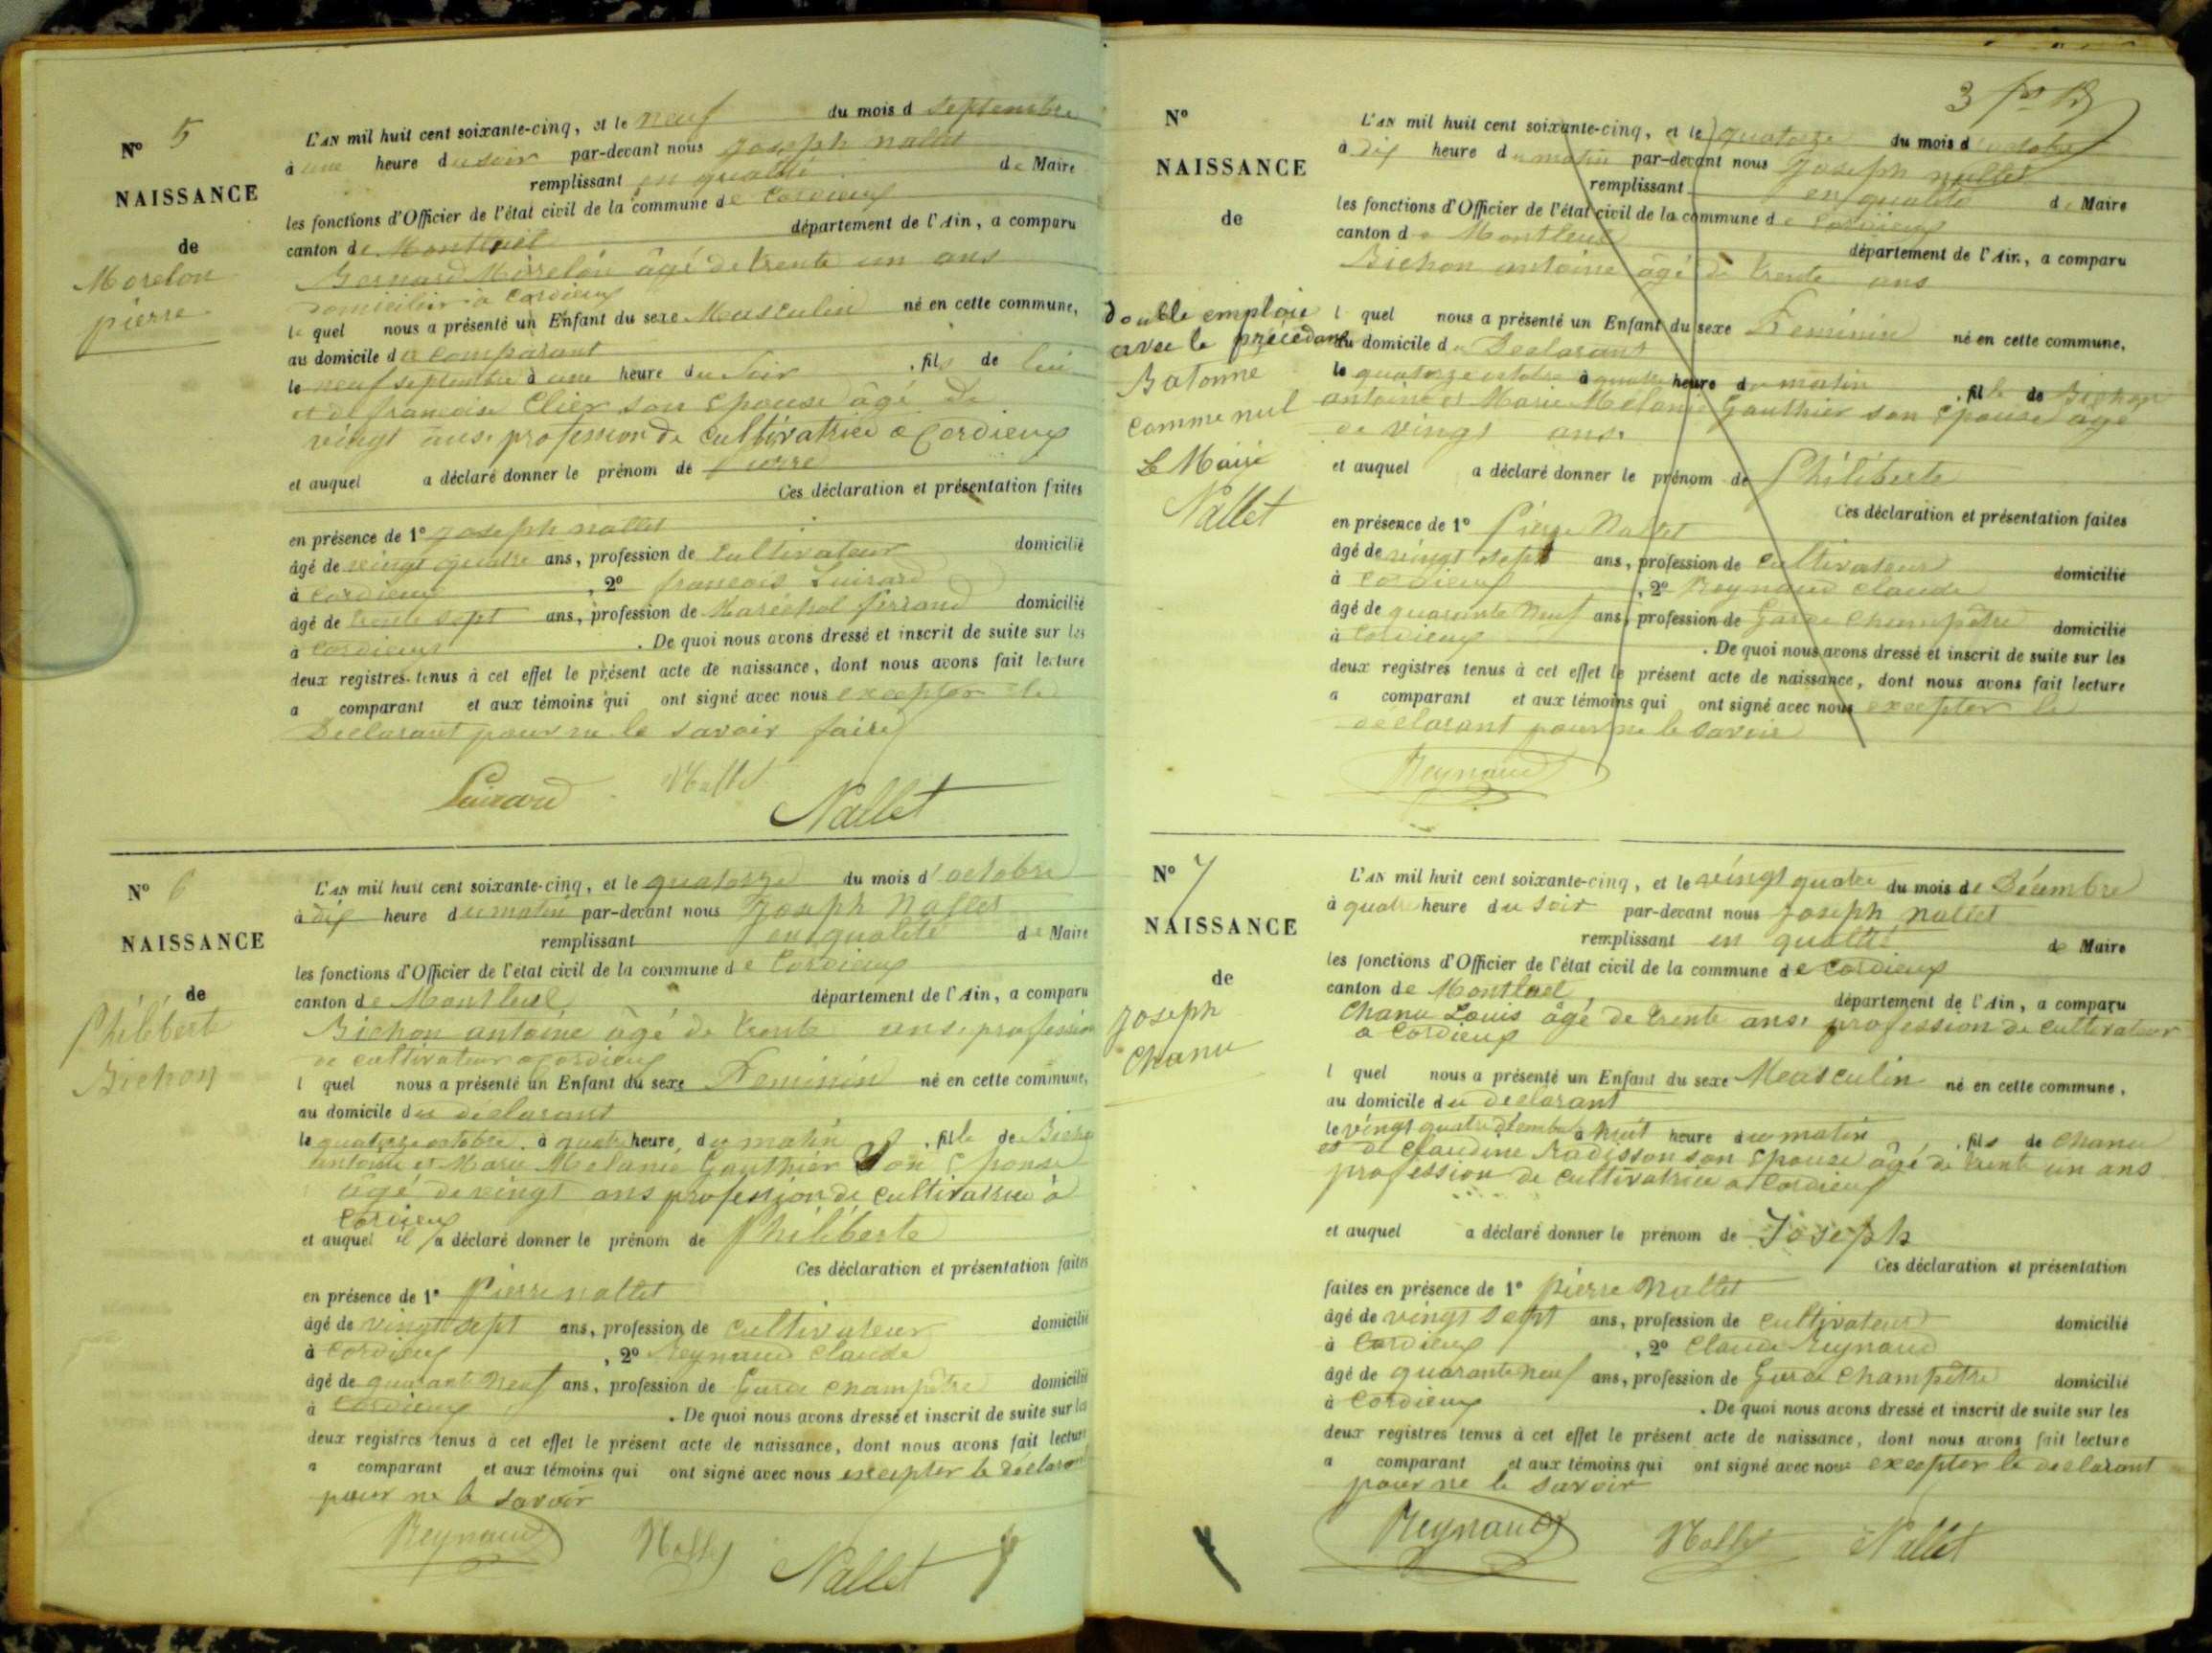 N° 5
NAISSANCE
de
Morelon
pierre
L'AN mil huit cent soixante-cinq, et le neuf du mois d septembre
à une heure du soir par-devant nous joseph nallet
remplissant en qualité de Maire
les fonctions d'Officier de l'état civil de la commune de Cordieux
canton de Montluel département de l'Ain, a comparu
Bernard Morelon âgé de trente un ans
domicilier à Cordieux
le quel nous a présenté un Enfant du sexe Masculin né en cette commune,
au domicile du comparant
le neuf septembre à une heure du Soir , fils de lui
et de francoise Clier son Epouse âgé de
vingt ans. profession de Cultivatrice a Cordieux
et auquel a déclaré donner le prénom de pierre
Ces déclaration et présentation faites
en présence de 1° joseph nallet
âgé de vingt quatre ans, profession de Cultivateur domicilié
à Cordieux , 2° francois
âgé de trente sept ans, profession de Maréchal ferrand domicilié
à Cordieux . De quoi nous avons dressé et inscrit de suite sur les
deux registres tenus à cet effet le présent acte de naissance, dont nous avons fait lecture
a comparant et aux témoins qui ont signé avec nous excepter le
Declarant pour ne le savoir faire
Nallet
Nallet
N° 6
NAISSANCE
de
Philiberte
Bichon
L'AN mil huit cent soixante-cinq, et le quatorze du mois d'octobre
à dix heure du matin par-devant nous Joseph Nallet
remplissant en qualité de Maire
les fonctions d'Officier de l'état civil de la commune de Cordieux
canton de Montluel département de l'Ain, a comparu
Bichon antoine âgé de trente ans. profession
de cultivateur a Cordieux
l quel nous a présenté un Enfant du sexe Feminin né en cette commune,
au domicile du déclarant
le quatorze octobre à quatre heure, du matin , fille de Bichon
antoine et Marie Melanie Gauthier son Epouse
âgé de vingt ans profession de cultivatrice à
Cordieux
et auquel il a déclaré donner le prénom de Philiberte
Ces déclaration et présentation faites
en présence de 1° Pierre nallet
âgé de vingt sept ans, profession de Cultivateur domicilié
à Cordieux , 2° Reynaud Claude
âgé de quarante neuf ans, profession de Garde champêtre domicilié
à Cordieux . De quoi nous avons dressé et inscrit de suite sur les
deux registres tenus à cet effet le présent acte de naissance, dont nous avons fait lecture
a comparant et aux témoins qui ont signé avec nous excepter le déclarant
pour ne le savoir
Reynaud Nallet Nallet
N°
NAISSANCE
de
double emploie
avec le précédant
Batonné
comme nul
Le Maire
Nallet
L'AN mil huit cent soixante-cinq, et le quatorze du mois d'octobre
à dix heure du matin par-devant nous Joseph nallet
remplissant en qualité de Maire
les fonctions d'Officier de l'état civil de la commune de Cordieux
canton de Montluel département de l'Ain, a comparu
Bichon antoine âgé de trente ans
l quel nous a présenté un Enfant du sexe Feminin né en cette commune,
au domicile du Declarant
le quatorze octobre à quatre heure du matin , fille de Bichon
antoine et Marie Melanie Gauthier son Epouse âgé
de vingt ans.
et auquel a déclaré donner le prénom de Philiberte
Ces déclaration et présentation faites
en présence de 1° Pierre Nallet
âgé de vingt sept ans, profession de Cultivateur domicilié
à Cordieux , 2° Reynaud Claude
âgé de quarante neuf ans, profession de Garde Champêtre domicilié
à Cordieux . De quoi nous avons dressé et inscrit de suite sur les
deux registres tenus à cet effet le présent acte de naissance, dont nous avons fait lecture
a comparant et aux témoins qui ont signé avec nous excepter le
declarant pour ne le savoir
Reynaud
N° 7
NAISSANCE
de
joseph
Chanu
L'AN mil huit cent soixante-cinq, et le vingt quatre du mois de Décembre
à quatre heure du Soir par-devant nous joseph nallet
remplissant en qualité de Maire
les fonctions d'Officier de l'état civil de la commune de Cordieux
canton de Montluel département de l'Ain, a comparu
Chanu Louis âgé de trente ans. profession de cultivateur
a Cordieux
l quel nous a présenté un Enfant du sexe Masculin né en cette commune,
au domicile du declarant
le vingt quatre décembre à huit heure du matin , fils de Chanu
et de Claudine Radisson son Epouse âgé de trente un ans
profession de cultivatrice a Cordieux
et auquel a déclaré donner le prénom de Joseph
Ces déclaration et présentation
faites en présence de 1° pierre Nallet
âgé de vingt sept ans, profession de Cultivateur domicilié
à Cordieux , 2° Claude Reynaud
âgé de quarante neuf ans, profession de Garde Champêtre domicilié
à Cordieux . De quoi nous avons dressé et inscrit de suite sur les
deux registres tenus à cet effet le présent acte de naissance, dont nous avons fait lecture
a comparant et aux témoins qui ont signé avec nous excepter le declarant
pour ne le savoir
Reynaud Nallet Nallet